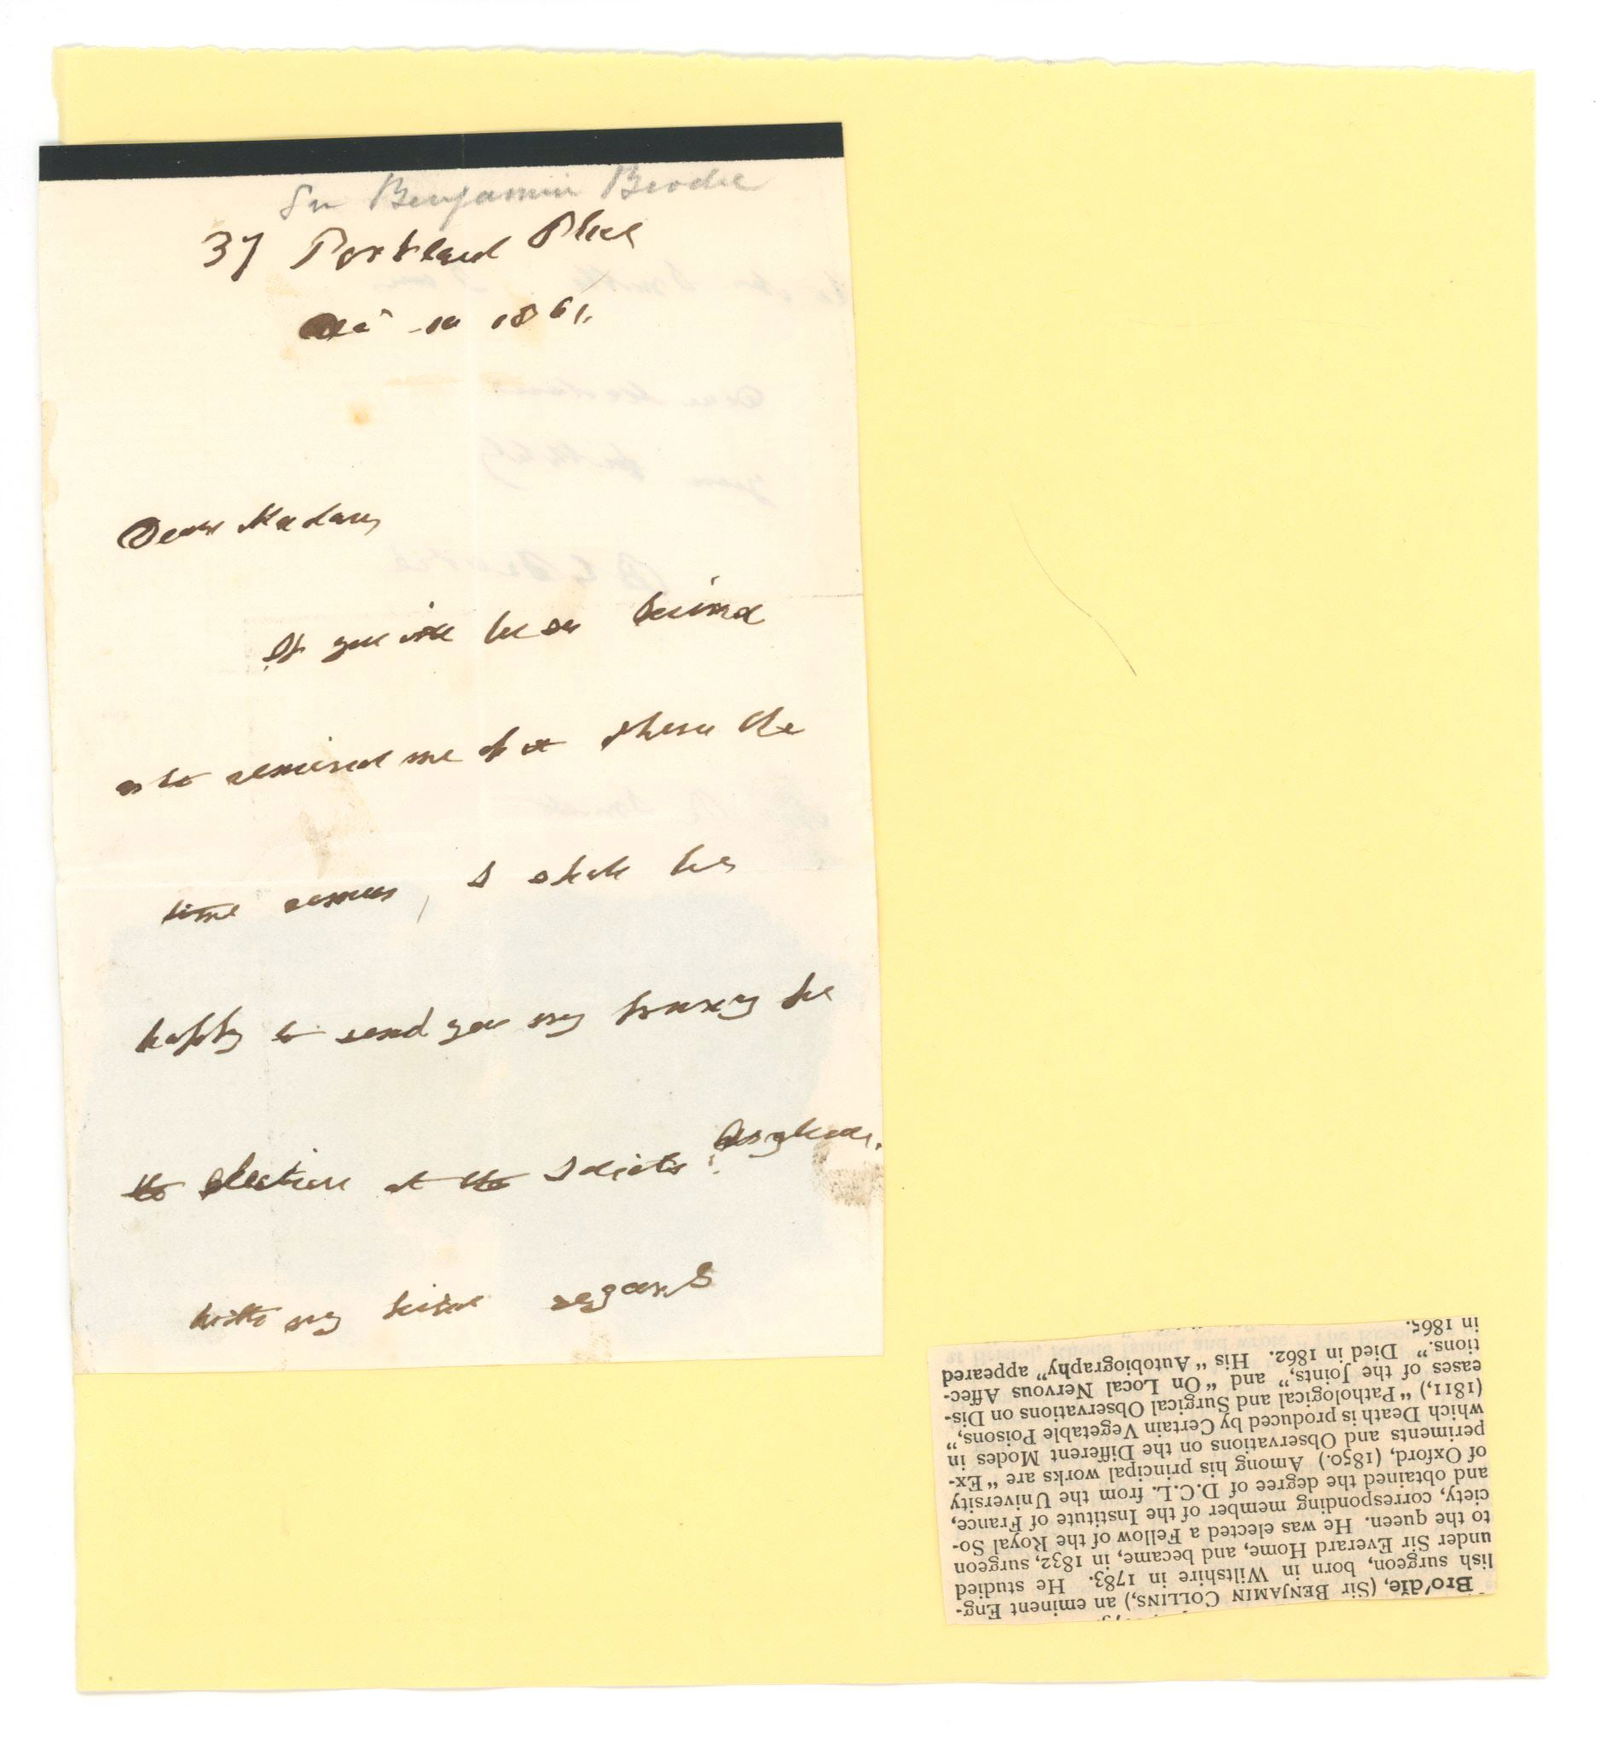 Sir Benjamin Brodie
37 Portland Place
10 1861.
Dear Madam,
If you will be so kind
as to remind me of it when the
time comes, I shall be
happy to send you my proxy for
the election at the Idiots' Asylum.
With my kind regards
Bro′dĭe, (Sir BENJAMIN COLLINS,) an eminent Eng-
lish surgeon, born in Wiltshire in 1783. He studied
under Sir Everard Home, and became, in 1832, surgeon
to the queen. He was elected a Fellow of the Royal So-
ciety, corresponding member of the Institute of France,
and obtained the degree of D.C.L. from the University
of Oxford, (1850.) Among his principal works are “Ex-
periments and Observations on the Different Modes in
which Death is produced by Certain Vegetable Poisons,”
(1811,) “Pathological and Surgical Observations on Dis-
eases of the Joints,” and “On Local Nervous Affec-
tions.” Died in 1862. His “Autobiography” appeared
in 1865.